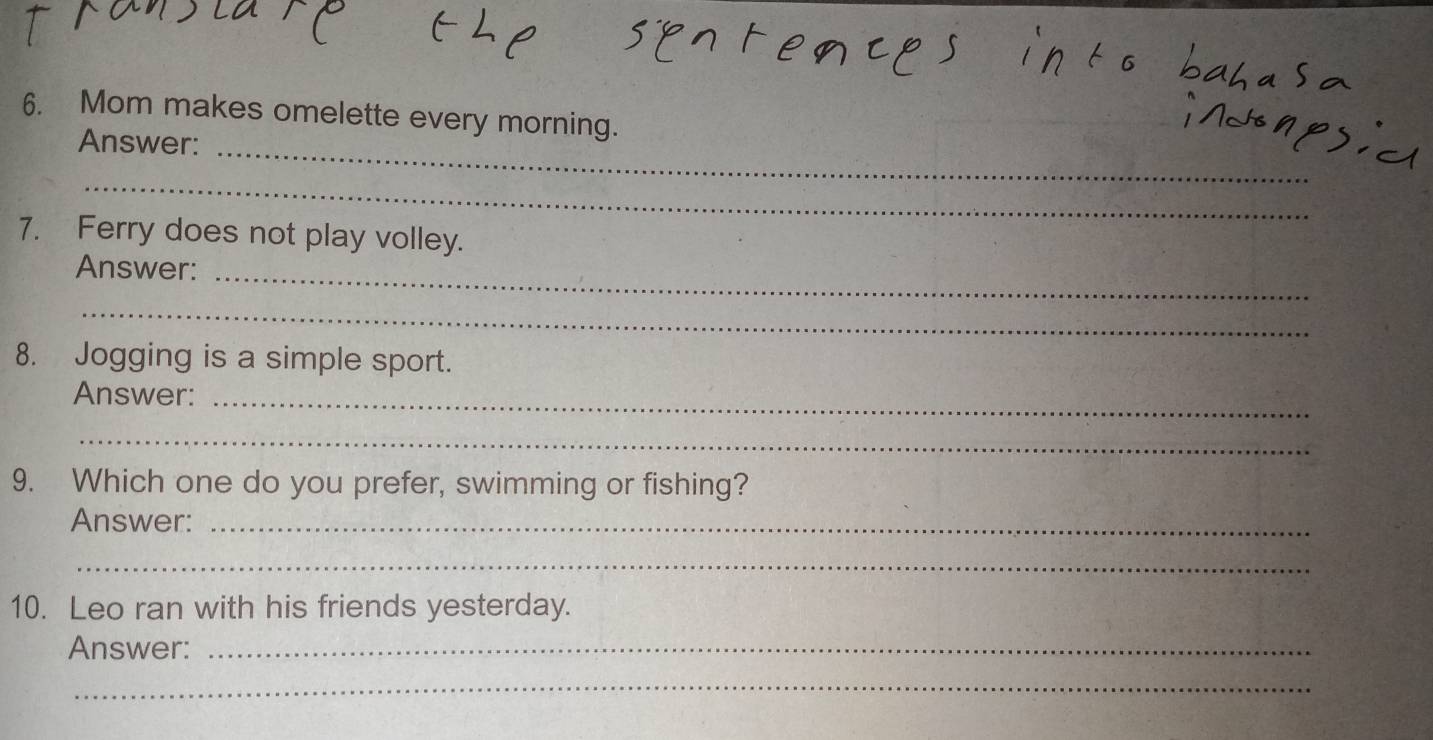 Translate the sentences into bahasa
indonesia
6. Mom makes omelette every morning.
Answer:
7. Ferry does not play volley.
Answer:
8. Jogging is a simple sport.
Answer:
9. Which one do you prefer, swimming or fishing?
Answer:
10. Leo ran with his friends yesterday.
Answer: